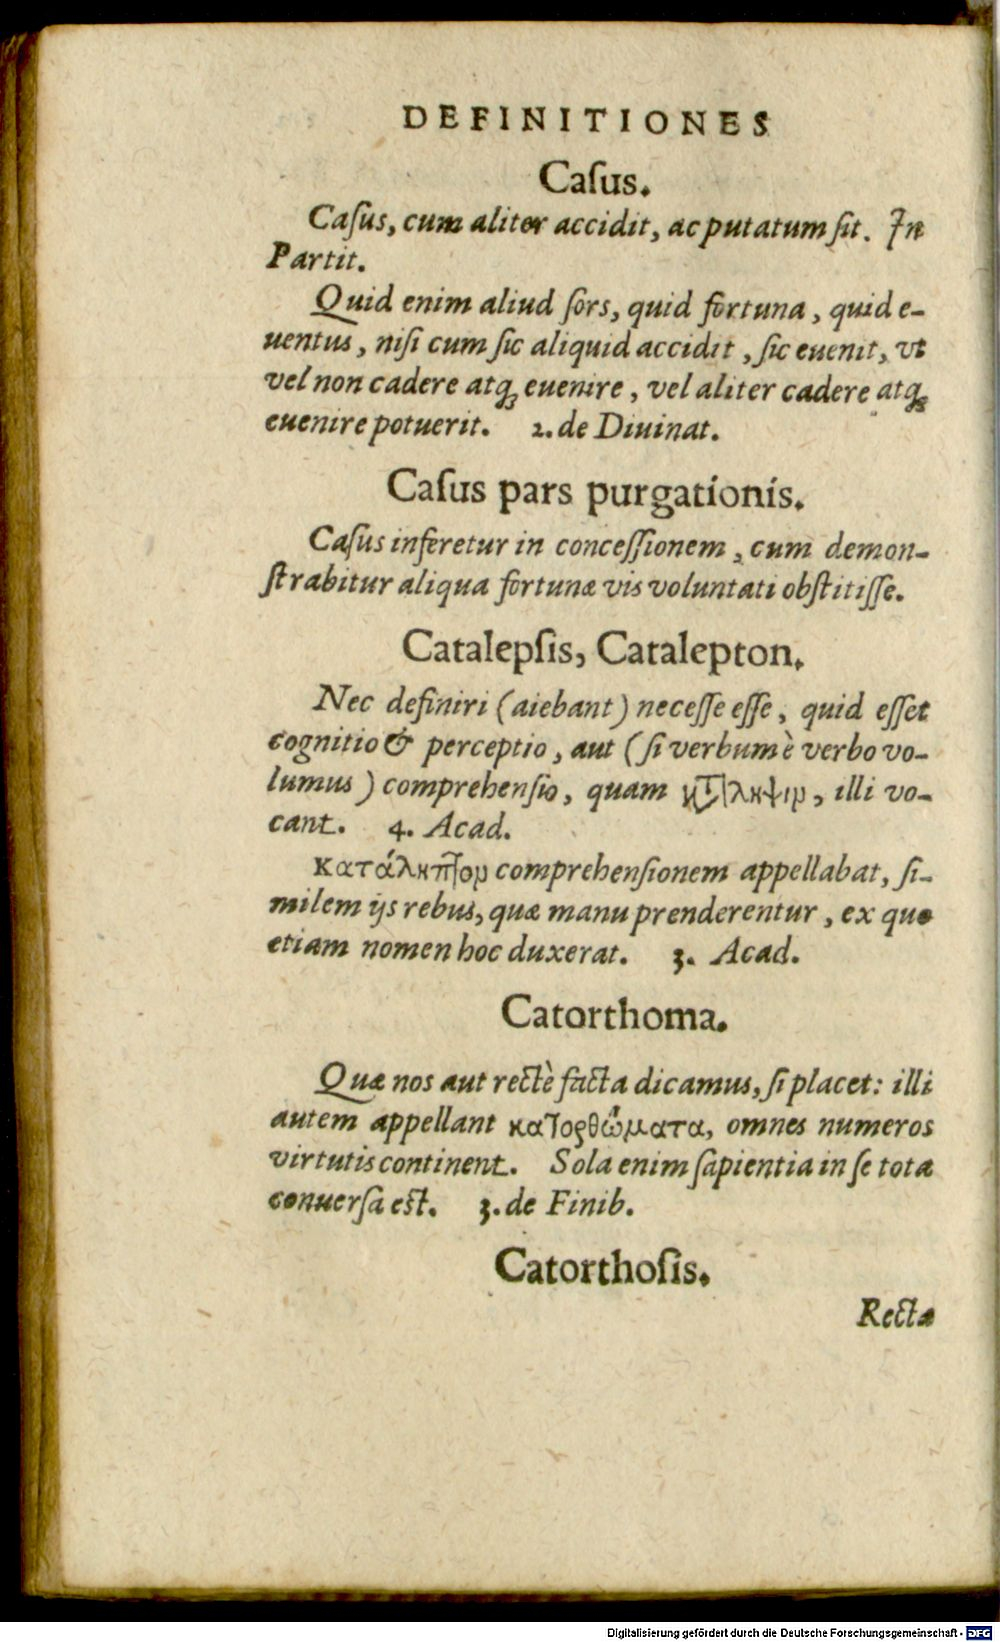 DEFINITIONES
Caſus.
Caſus, cum aliter accidit, ac putatum ſit. In
Partit.
Quid enim aliud ſors, quid fortuna, quid e-
uentus, niſi cum ſic aliquid accidit, ſic euenit, vt
vel non cadere atq; euenire, vel aliter cadere atq;
euenire potuerit. 2. de Diuinat.
Caſus pars purgationis.
Caſus inferetur in conceſſionem, cum demon-
ſtrabitur aliqua fortunæ vis voluntati obſtitiſſe.
Catalepſis, Catalepton.
Nec definiri (aiebant) neceſſe eſſe, quid eſſet
cognitio & perceptio, aut (ſi verbum è verbo vo-
lumus) comprehenſio, quam κατάληψιν, illi vo-
cant. 4. Acad.
κατάληπτον comprehenſionem appellabat, ſi-
milem ijs rebus, quæ manu prenderentur, ex quo
etiam nomen hoc duxerat. 3. Acad.
Catorthoma.
Quæ nos aut rectè facta dicamus, ſi placet: illi
autem appellant κατορθώματα, omnes numeros
virtutis continent. Sola enim ſapientia in ſe tota
conuerſa eſt. 3. de Finib.
Catorthoſis.
Recta
Digitalisierung gefördert durch die Deutsche Forschungsgemeinschaft - DFG